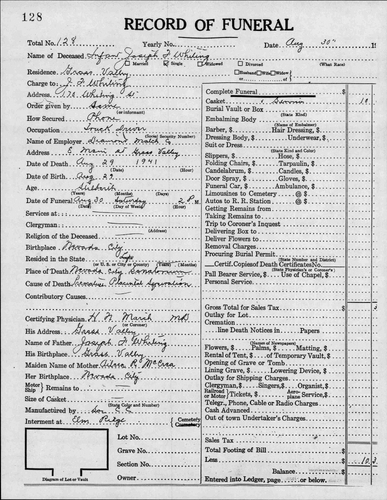 128
RECORD OF FUNERAL
Total No. 128 Yearly No. Date Aug 30 1
Name of Deceased Infant Joseph F Whiting
Married Single Widowed Divorced (What Race)
Residence Grass Valley Husband Wife Widow of
Charge to J. F. Whiting
Address Whiting St.
Order given by Same
How Secured Phone
Occupation Truck Driver
(Social Security Number)
Name of Employer
Address E. Main St Grass Valley
Date of Death Aug 29 1941
(Date) (Hour)
Date of Birth Aug 29
(Date) (Hour)
Age Stillbirth
(Years) (Months) (Days)
Date of Funeral Aug 30 Saturday 2 P. M.
(Date) (Day of Week) (Hour)
Services at
Clergyman
(Address)
Religion of the Deceased
Birthplace Nevada City
Resided in the State
(U. S. or City or County) (Months)
Place of Death Nevada City Sanatorium
Cause of Death Premature Placenta Separation
Contributory Causes
Certifying Physician H N Marsh MD
(or Coroner)
His Address Grass Valley
Name of Father Joseph F Whiting
His Birthplace Grass Valley
Maiden Name of Mother
Her Birthplace Nevada City
Motor Ship } Remains to
Size of Casket
(State Color and Number)
Manufactured by
Interment at Elm Ridge { Cemetery Crematory
Lot No.
Grave No.
Section No.
Owner
Diagram of Lot or Vault
Complete Funeral
Casket Service 10
Burial Vault or Box
(State Kind)
Embalming Body
(Name of Embalmer)
Barber, $ Hair Dressing, $
Dressing Body, $ Underwear, $
Suit or Dress
(State Kind and Color)
Slippers, $ Hose, $
Folding Chairs, $ Tarpaulin, $
Candelabrum, $ Candles, $
Door Spray, $ Gloves, $
Funeral Car, $ Ambulance, $
Limousines to Cemetery @ $
Autos to R. R. Station @ $
Getting Remains from
Taking Remains to
Trip to Coroner's Inquest
Delivering Box to
Deliver Flowers to
Removal Charges
Procuring Burial Permit
(State Number and District)
Certif. Copies of Death Certificates No.
(State Physician's or Coroner's)
Pall Bearer Service, $ Use of Chapel, $
Personal Service
Gross Total for Sales Tax
Outlay for Lot
Cremation
line Death Notices in Papers
(Names of Newspapers)
Flowers, $ Palms, $ Matting, $
Rental of Tent, $ of Temporary Vault, $
Opening of Grave or Tomb
Lining Grave, $ Lowering Device, $
Outlay for Shipping Charges
Clergyman, $ Singers, $ Organist, $
Railroad Motor } Tickets, $ Police service, $
Telegr., Phone, Cable or Radio Charges
Cash Advanced
Out of town Undertaker's Charges
Sales Tax
Total Footing of Bill
Less 10 3
Balance
Entered into Ledger, page or below.